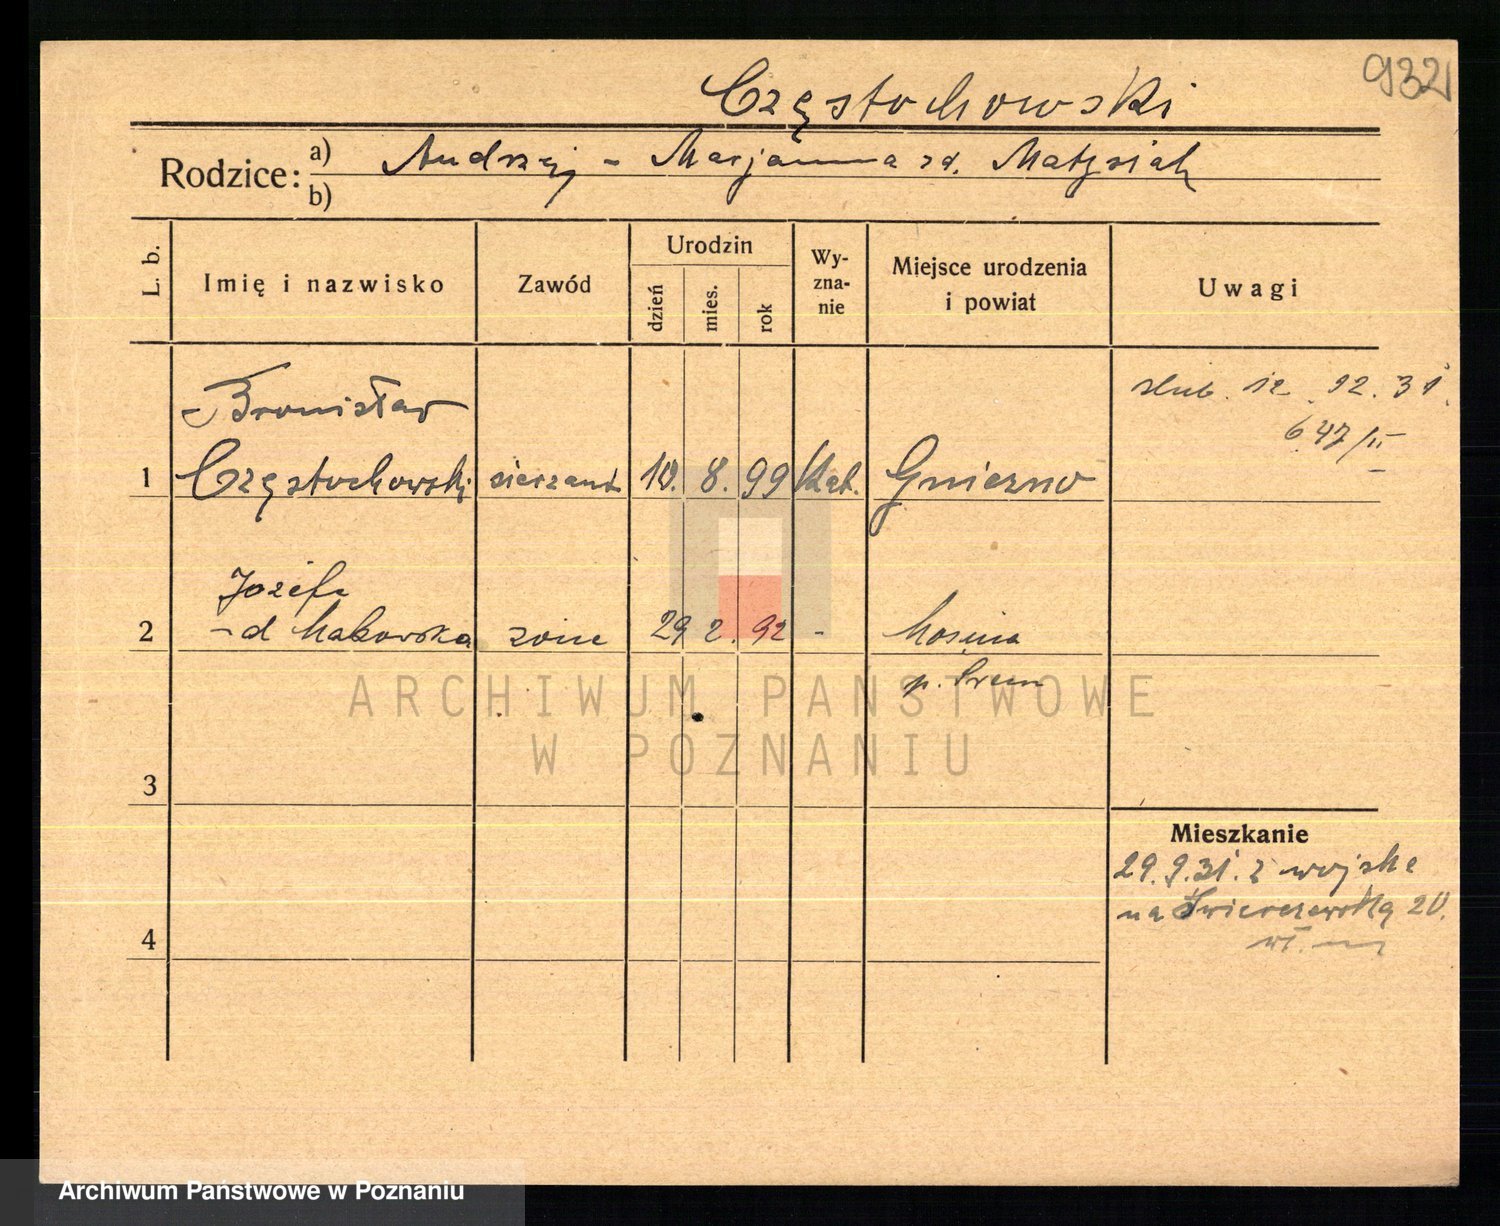 932
Częstochowski
Rodzice:
a) Andrzej - Marjanna zd. Matysiak
b)
L. b.
Imię i nazwisko
Zawód
Urodzin
dzień
mies.
rok
Wy-
zna-
nie
Miejsce urodzenia
i powiat
Uwagi
ślub. 12. 12. 31.
647/II
Bronisław
1 Częstochowski sierżant 10. 8. 99 Kat. Gniezno
Józefa
2 -d Makowska żona 29 2. 92 - Mosina
p. Śrem
ARCHIWUM PAŃSTWOWE
W POZNANIU
3
Mieszkanie
29.9.31. z wojska
na Świerczewską 20.
wł.
4
Archiwum Państwowe w Poznaniu